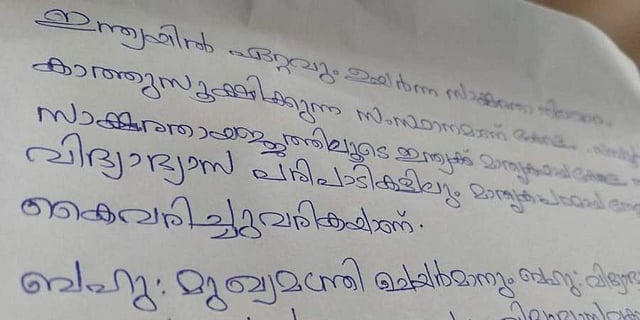 ഇന്ത്യയിൽ ഏറ്റവും ഉയർന്ന സാക്ഷരതാ നിലവാരം
കാത്തുസൂക്ഷിക്കുന്ന സംസ്ഥാനമാണ് കേരളം.
സാക്ഷരതായജ്ഞത്തിലൂടെ ഇന്ത്യക്ക് മാതൃകയായ കേരളം
വിദ്യാഭ്യാസ പരിപാടികളിലും മാതൃകാപരമായ
കൈവരിച്ചുവരികയാണ്.
ബഹു: മുഖ്യമന്ത്രി ചെയർമാനും ബഹു: